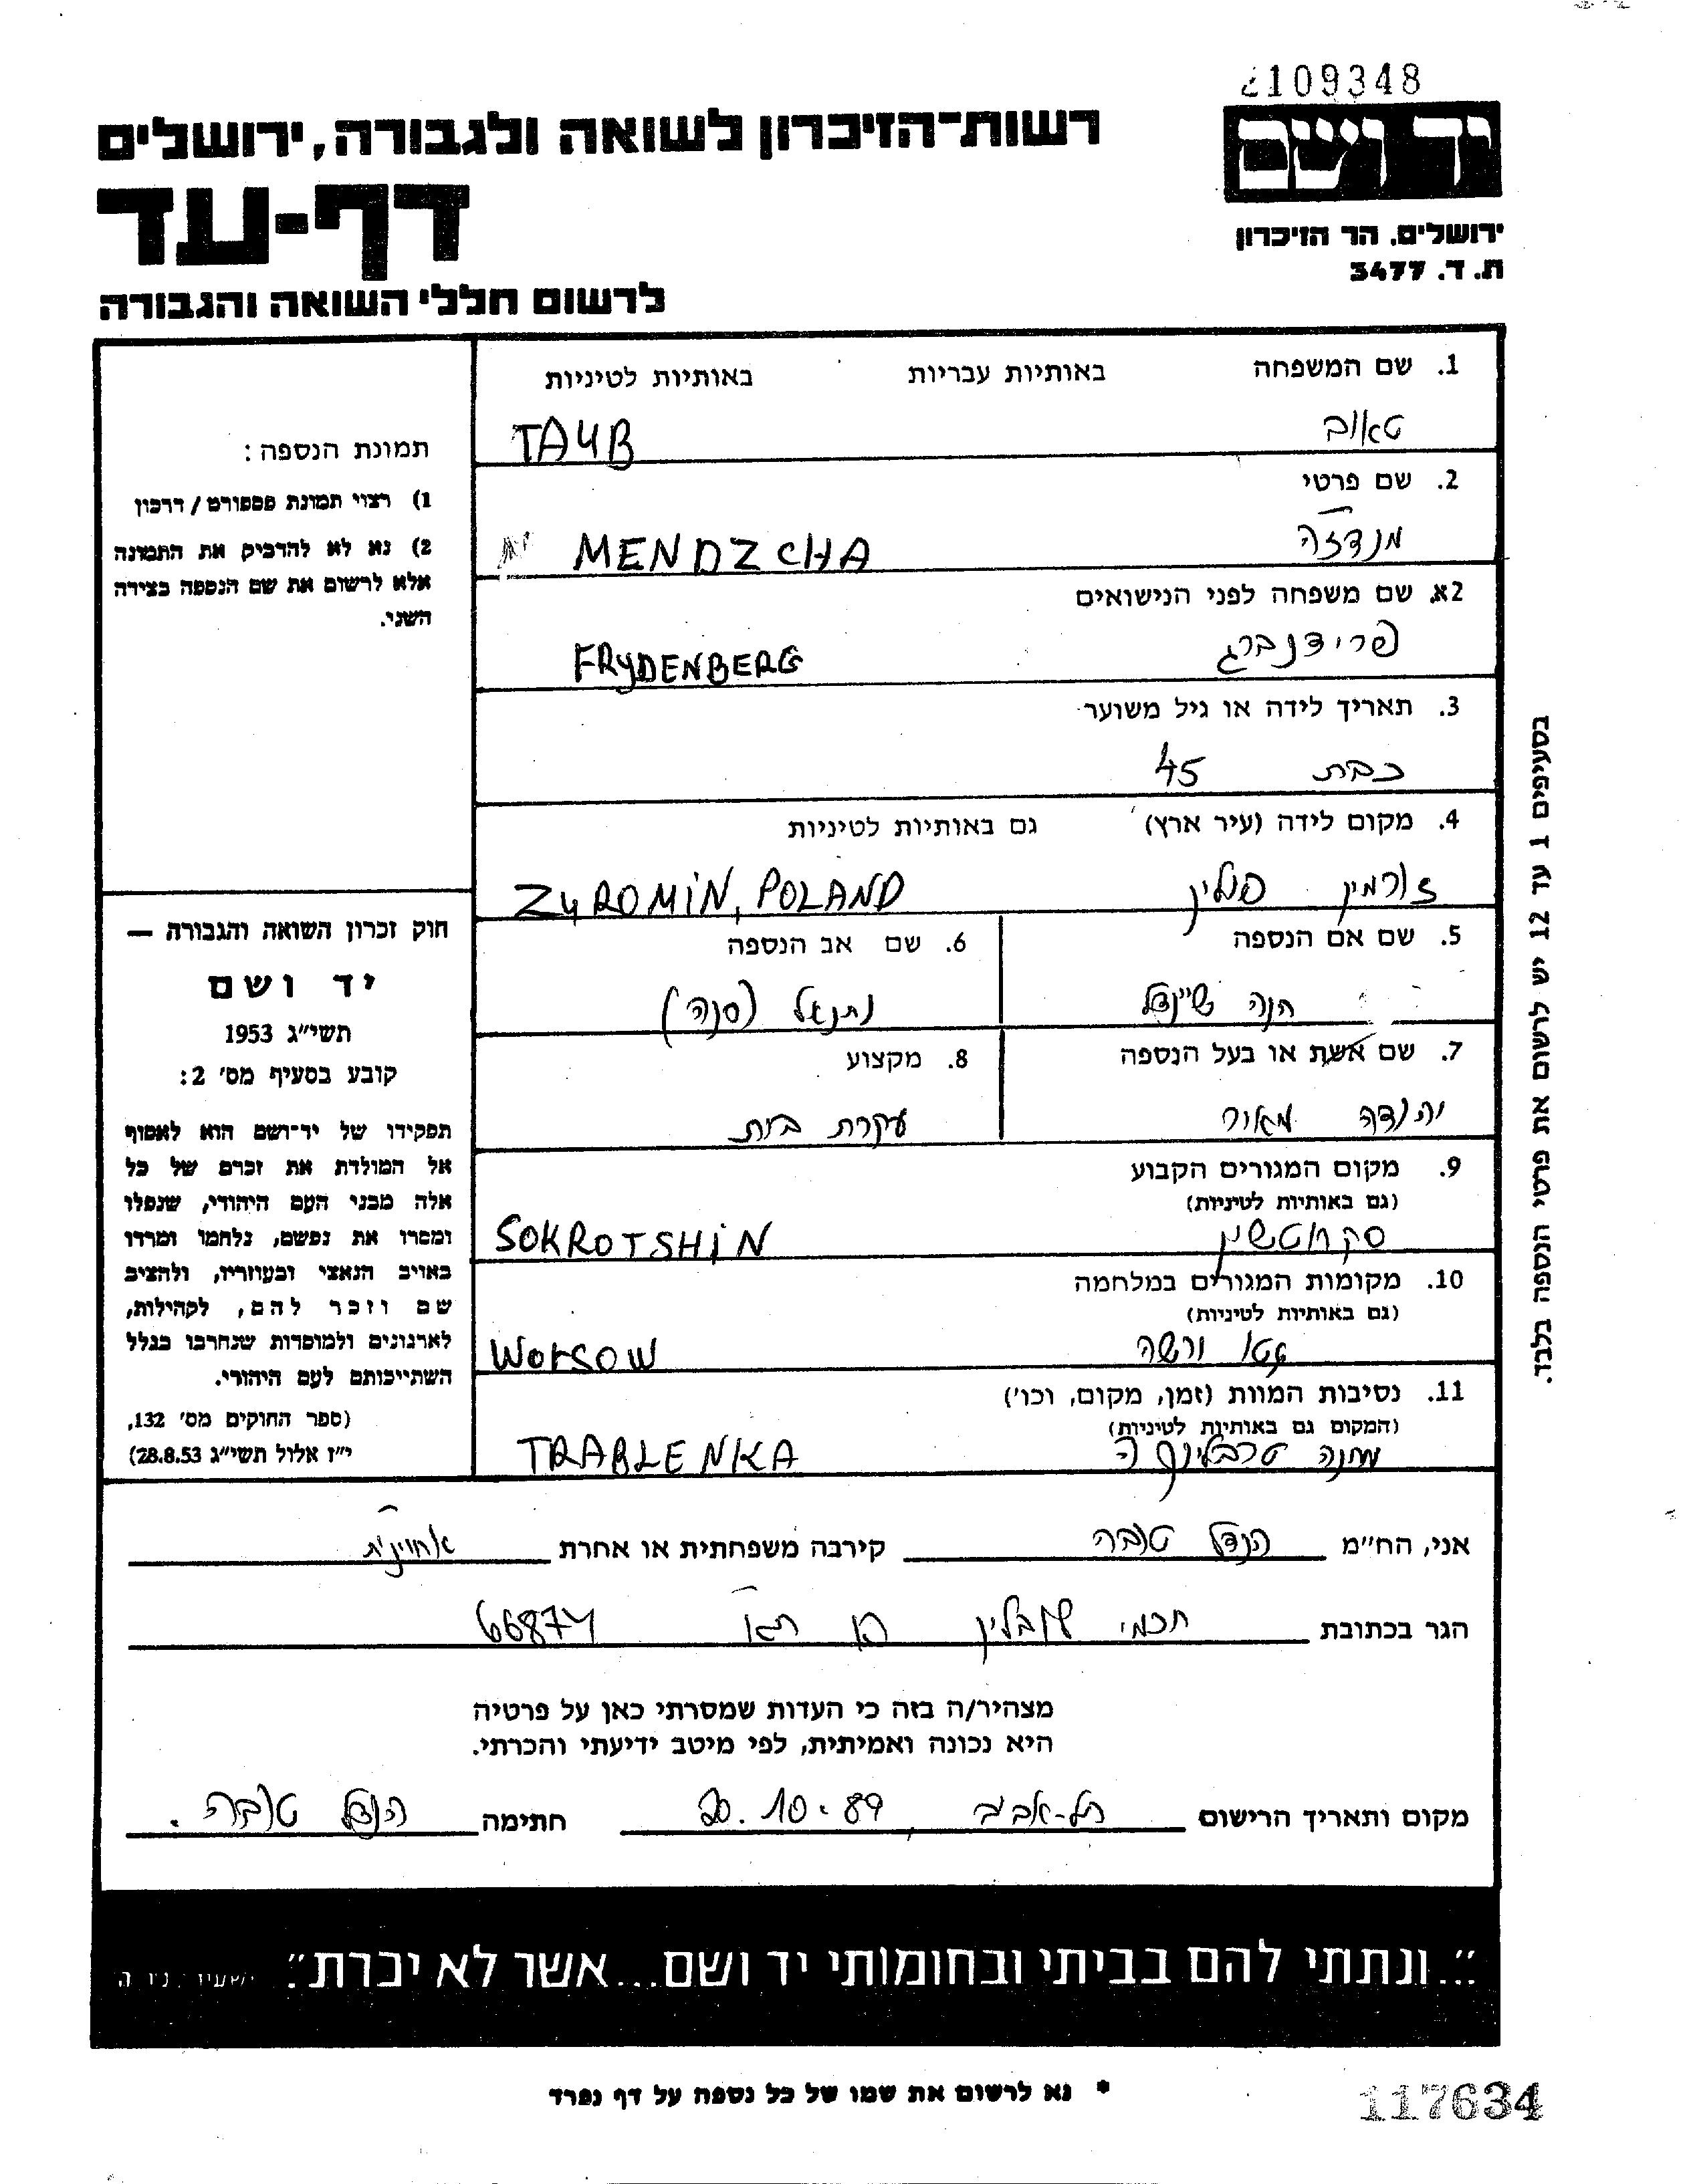 2109348
רשות־הזיכרון לשואה ולגבורה, ירושלים
יד ושם
דף-עד
ירושלים, הר הזיכרון
ת. ד. 3477
לרשום חללי השואה והגבורה
1. שם המשפחה באותיות עבריות באותיות לטיניות
טאוב TAUB
2. שם פרטי
מנדזה MENDZCHA
2א. שם משפחה לפני הנישואים
פרידנברג FRYDENBERG
3. תאריך לידה או גיל משוער
כבת 45
4. מקום לידה (עיר ארץ) גם באותיות לטיניות
זורמין פולין ZYROMIN, POLAND
5. שם אם הנספה 6. שם אב הנספה
חנה שיינדל נתנאל
7. שם אשת או בעל הנספה 8. מקצוע
יהודה מאיר עקרת בית
9. מקום המגורים הקבוע
(גם באותיות לטיניות)
סקרוטשין SOKROTSHIN
10. מקומות המגורים במלחמה
(גם באותיות לטיניות)
גטו ורשה Worsow
11. נסיבות המוות (זמן, מקום, וכו')
(המקום גם באותיות לטיניות)
מחנה טרבלינקה TRABLENKA
תמונת הנספה:
1) רצוי תמונת פספורט / דרכון
2) נא לא להדביק את התמונה
אלא לרשום את שם הנספה בצידה
השני.
חוק זכרון השואה והגבורה —
יד ושם
תשי״ג 1953
קובע בסעיף מס׳ 2:
תפקידו של יד־ושם הוא לאסוף
אל המולדת את זכרם של כל
אלה מבני העם היהודי, שנפלו
ומסרו את נפשם, נלחמו ומרדו
באויב הנאצי ובעוזריו, ולהציב
שם וזכר להם, לקהילות,
לארגונים ולמוסדות שנחרבו בגלל
השתייכותם לעם היהודי.
(ספר החוקים מס׳ 132,
י״ז אלול תשי״ג 28.8.53)
בסעיפים 1 עד 12 יש לרשום את פרטי הנספה בלבד.
אני, הח״מ הנדל טובה קירבה משפחתית או אחרת אחיינית
הגר בכתובת חכמי לובלין תא 66874
מצהיר/ה בזה כי העדות שמסרתי כאן על פרטיה
היא נכונה ואמיתית, לפי מיטב ידיעתי והכרתי.
מקום ותאריך הרישום תל-אביב 20.10.89 חתימה הנדל טובה
"...ונתתי להם בביתי ובחומותי יד ושם...אשר לא יכרת" ישעיהו נ״ו ה
* נא לרשום את שמו של כל נספה על דף נפרד
117634